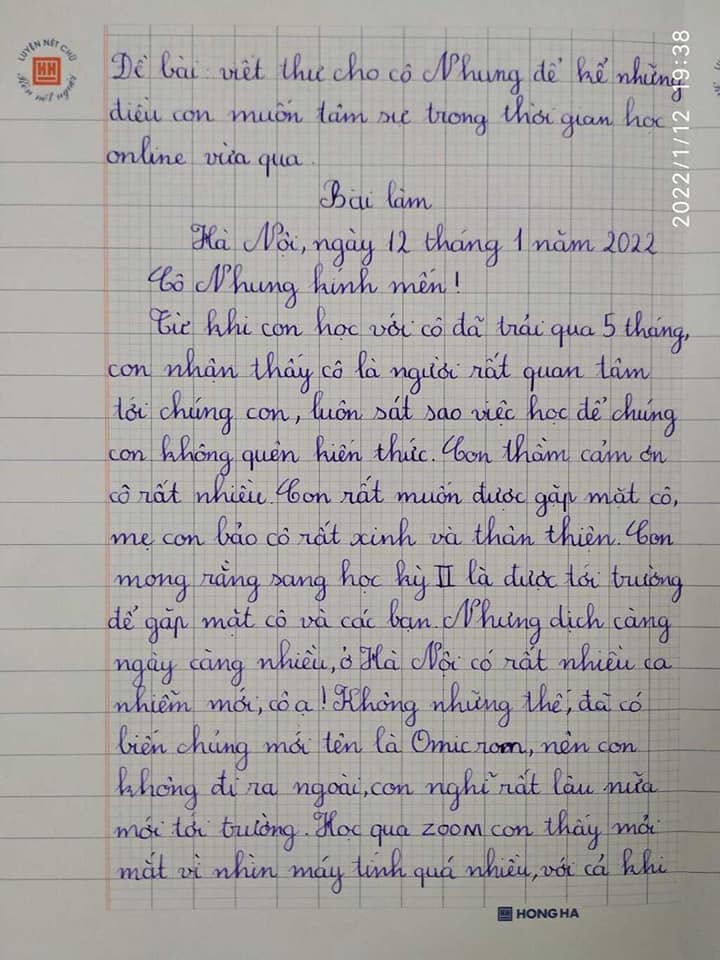 LUYỆN NÉT CHỮ
HH
Rèn nết người
Đề bài: viết thư cho cô Nhung để kể những
điều con muốn tâm sự trong thời gian học
online vừa qua.
Bài làm
Hà Nội, ngày 12 tháng 1 năm 2022
Cô Nhung kính mến!
Từ khi con học với cô đã trải qua 5 tháng,
con nhận thấy cô là người rất quan tâm
tới chúng con, luôn sát sao việc học để chúng
con không quên kiến thức. Con thầm cảm ơn
cô rất nhiều. Con rất muốn được gặp mặt cô,
mẹ con bảo cô rất xinh và thân thiện. Con
mong rằng sang học kỳ II là được tới trường
để gặp mặt cô và các bạn. Nhưng dịch càng
ngày càng nhiều, ở Hà Nội có rất nhiều ca
nhiễm mới, cô ạ! Không những thế, đã có
biến chủng mới tên là Omicrom, nên con
không đi ra ngoài, con nghĩ rất lâu nữa
mới tới trường. Học qua zoom con thấy mỏi
mắt vì nhìn máy tính quá nhiều, với cả khi
HH HONG HA
2022/1/12 19:38